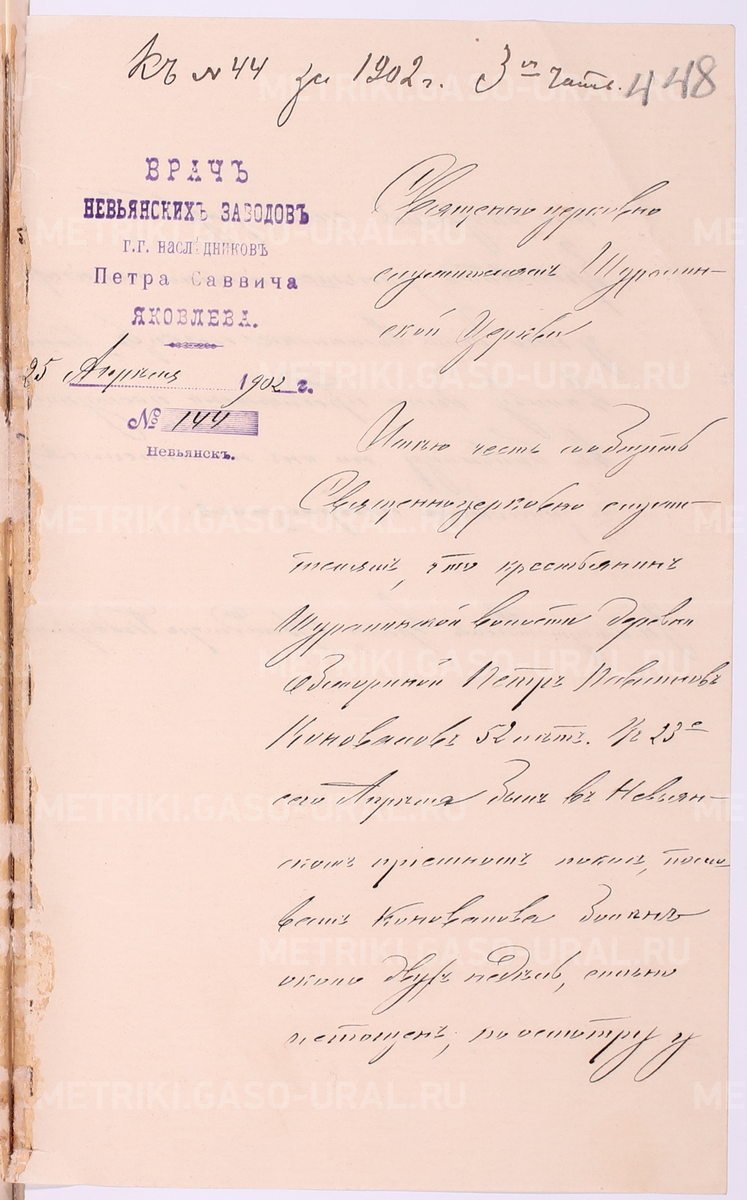 Къ № 44 за 1902 г. 3ья часть.
448
ВРАЧЪ
НЕВЬЯНСКИХЪ ЗАВОДОВЪ
Г.Г. НАСЛѢДНИКОВЪ
Петра Саввича
ЯКОВЛЕВА.
25 Апрѣля 1902 г.
№ 144
Невьянскъ.
Священно церковно
служителямъ Шуралин-
ской Церкви
Имѣю честь сообщить
Священноцерковно служи-
телямъ, что крестьянинъ
Шуралинской волости деревни
Петръ
Коноваловъ 52 лѣтъ. 23го
сего Апрѣля былъ въ Невьян-
скомъ пріемномъ покоѣ, по сло-
вамъ Коновалова боленъ
около двухъ недѣль, сильно
истощенъ, по осмотру у
METRIKI.GASO-URAL.RU